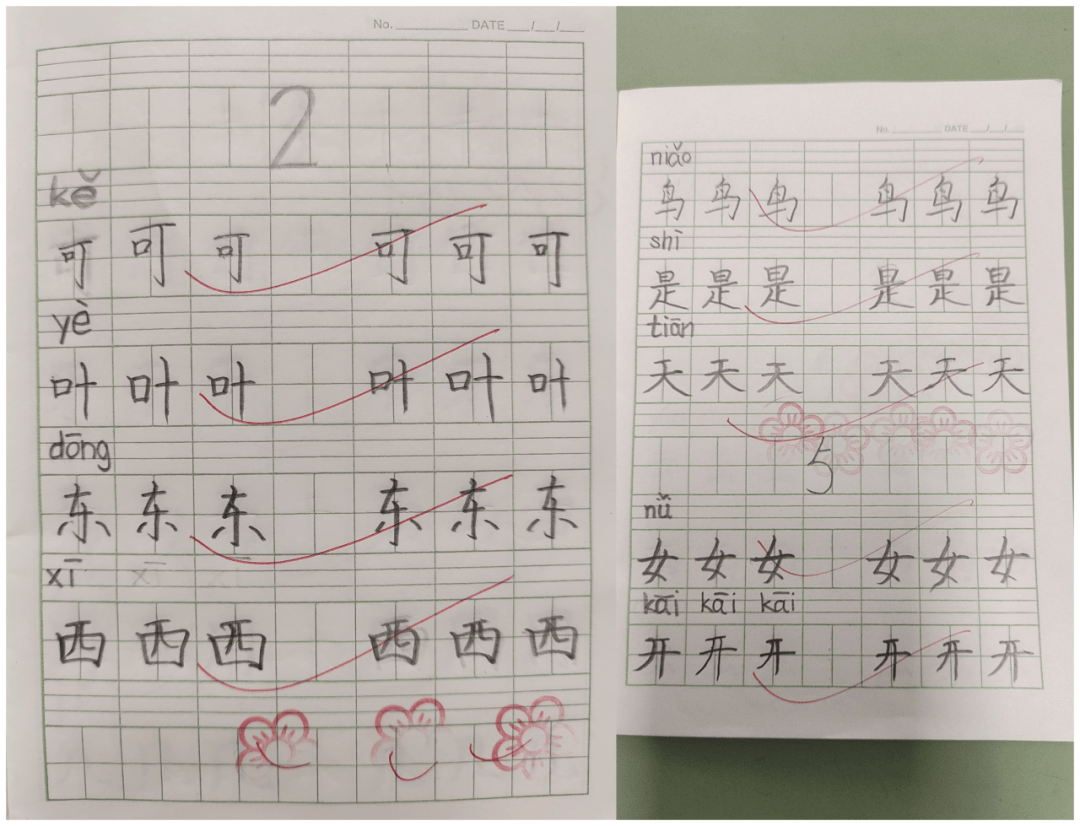 No. DATE / /
2
kě
可 可 可 可 可 可
yè
叶 叶 叶 叶 叶 叶
dōng
东 东 东 东 东 东
xī xī xī
西 西 西 西 西 西
No. DATE / /
niǎo
鸟 鸟 鸟 鸟 鸟 鸟
shì
是 是 是 是 是 是
tiān
天 天 天 天 天 天
5
nǚ
女 女 女 女 女 女
kāi kāi kāi
开 开 开 开 开 开